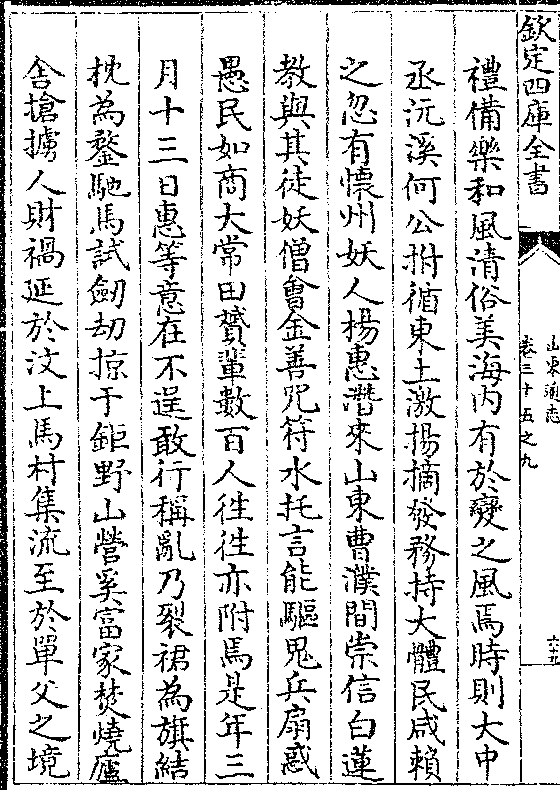 欽定四庫全書
山東通志
卷三十五之九
六十九
禮備樂和風清俗美海内有於變之風焉時則大中
丞沅溪何公拊循東土激揚摘發務持大體民咸賴
之忽有懷州妖人楊惠潛來山東曹濮間崇信白蓮
教與其徒妖僧㑹金善咒符水托言能驅鬼兵扇惑
愚民如商大常田贇輩數百人徃徃亦附焉是年三
月十三日惠等意在不逞敢行稱亂乃裂裙為旗結
枕為鍪馳馬試劒劫掠于鉅野山營奚富家焚燒廬
舍搶擄人財禍延於汶上馬村集流至於單父之境